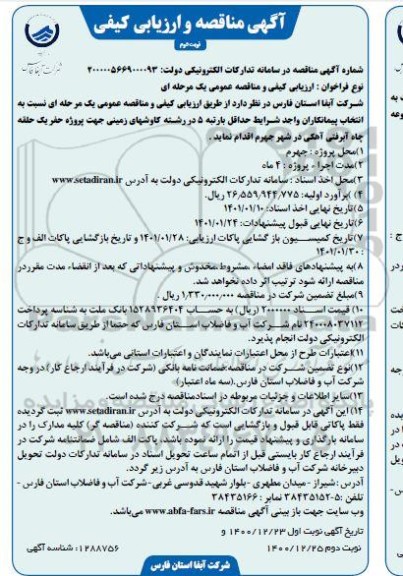 آگهی مناقصه و ارزیابی کیفی
نوبت دوم
شماره آگهی مناقصه در سامانه تدارکات الکترونیکی دولت: ۴۰۰۰۰۰۵۶۶۹۰۰۰۰۹۳
نوع فراخوان : ارزیابی کیفی و مناقصه عمومی یک مرحله ای
شرکت آبفا استان فارس در نظر دارد از طریق ارزیابی کیفی و مناقصه عمومی یک مرحله ای نسبت به
انتخاب پیمانکاران واجد شرایط حداقل با رتبه ۵ در رشته کاوشهای زمینی جهت پروژه حفر یک حلقه
چاه آبرفتی آهکی در شهر جهرم اقدام نماید .
۱)محل پروژه : جهرم
۲)مدت اجرا - پروژه : ۴ ماه
۳)محل اخذ اسناد : سامانه تدارکات الکترونیکی دولت به آدرس www.setadiran.ir
۴) )برآورد اولیه: ۲۶,۵۵۹,۹۴۴,۷۷۵ ریال .
۵)تاریخ نهایی اخذ اسناد: ۱۴۰۱/۰۱/۱۰
۶)تاریخ نهایی قبول پیشنهادات: ۱۴۰۱/۰۱/۲۴
۷)تاریخ کمیسیون باز گشایی پاکات ارزیابی: ۱۴۰۱/۰۱/۲۸ و تاریخ بازگشایی پاکات الف و ج
: ۱۴۰۱/۰۱/۳۰
۸)به پیشنهادهای فاقد امضاء ،مشروط،مخدوش و پیشنهاداتی که بعد از انقضاء مدت مقرر در
مناقصه ارائه شود ترتیب اثر داده نخواهد شد.
۹)مبلغ تضمین شرکت در مناقصه ۱,۳۳۰,۰۰۰,۰۰۰ ریال .
۱۰) قیمت اسناد ۲۰۰۰۰۰۰ (ریال) به حساب ۱۵۲۸۹۳۶۴۰۴ بانک ملت به شناسه پرداخت
۲۴۰۰۰۸۰۳۷۱۱۲ نام شرکت آب و فاضلاب استان فارس که حتما از طریق سامانه تدارکات
الکترونیکی دولت انجام پذیرد.
۱۱)اعتبارات طرح از محل اعتبارات نمایندگان و اعتبارات استانی می‌باشد.
۱۲)نوع تضمین شرکت در مناقصه:ضمانت نامه بانکی (شرکت در فرآیند ارجاع کار)در وجه
شرکت آب و فاضلاب استان فارس.(سه ماه اعتبار)
۱۳)سایر اطلاعات و جزئیات مربوطه در اسنادمناقصه درج شده است.
۱۴) این آگهی در سامانه تدارکات الکترونیکی دولت به آدرس www.setadiran.ir ثبت گردیده
فقط پاکاتی قابل قبول و بازگشایی است که شرکت کننده (مناقصه گر) کلیه مدارک را در
سامانه بارگذاری و پیشنهاد قیمت را ارائه نموده باشد، پاکت الف شامل ضمانتنامه شرکت در
فرآیند ارجاع کار بایستی قبل از اتمام ساعت تحویل اسناد در سامانه تدارکات دولت تحویل
دبیرخانه شرکت آب و فاضلاب استان فارس به آدرس زیر گردد.
آدرس :شیراز - میدان مطهری -بلوار شهید قدوسی غربی-شرکت آب و فاضلاب استان فارس -
تلفن :۵-۳۸۴۳۵۱۵۲ نمابر : ۳۸۴۳۵۱۶۶
وب سایت جهت باز بینی آگهی مناقصه www.abfa-fars.ir می‌باشد.
تاریخ آگهی نوبت اول ۱۴۰۰/۱۲/۲۳ و
نوبت دوم ۱۴۰۰/۱۲/۲۵ ۱۲۸۸۷۵۶: شناسه آگهی
شرکت آبفا استان فارس